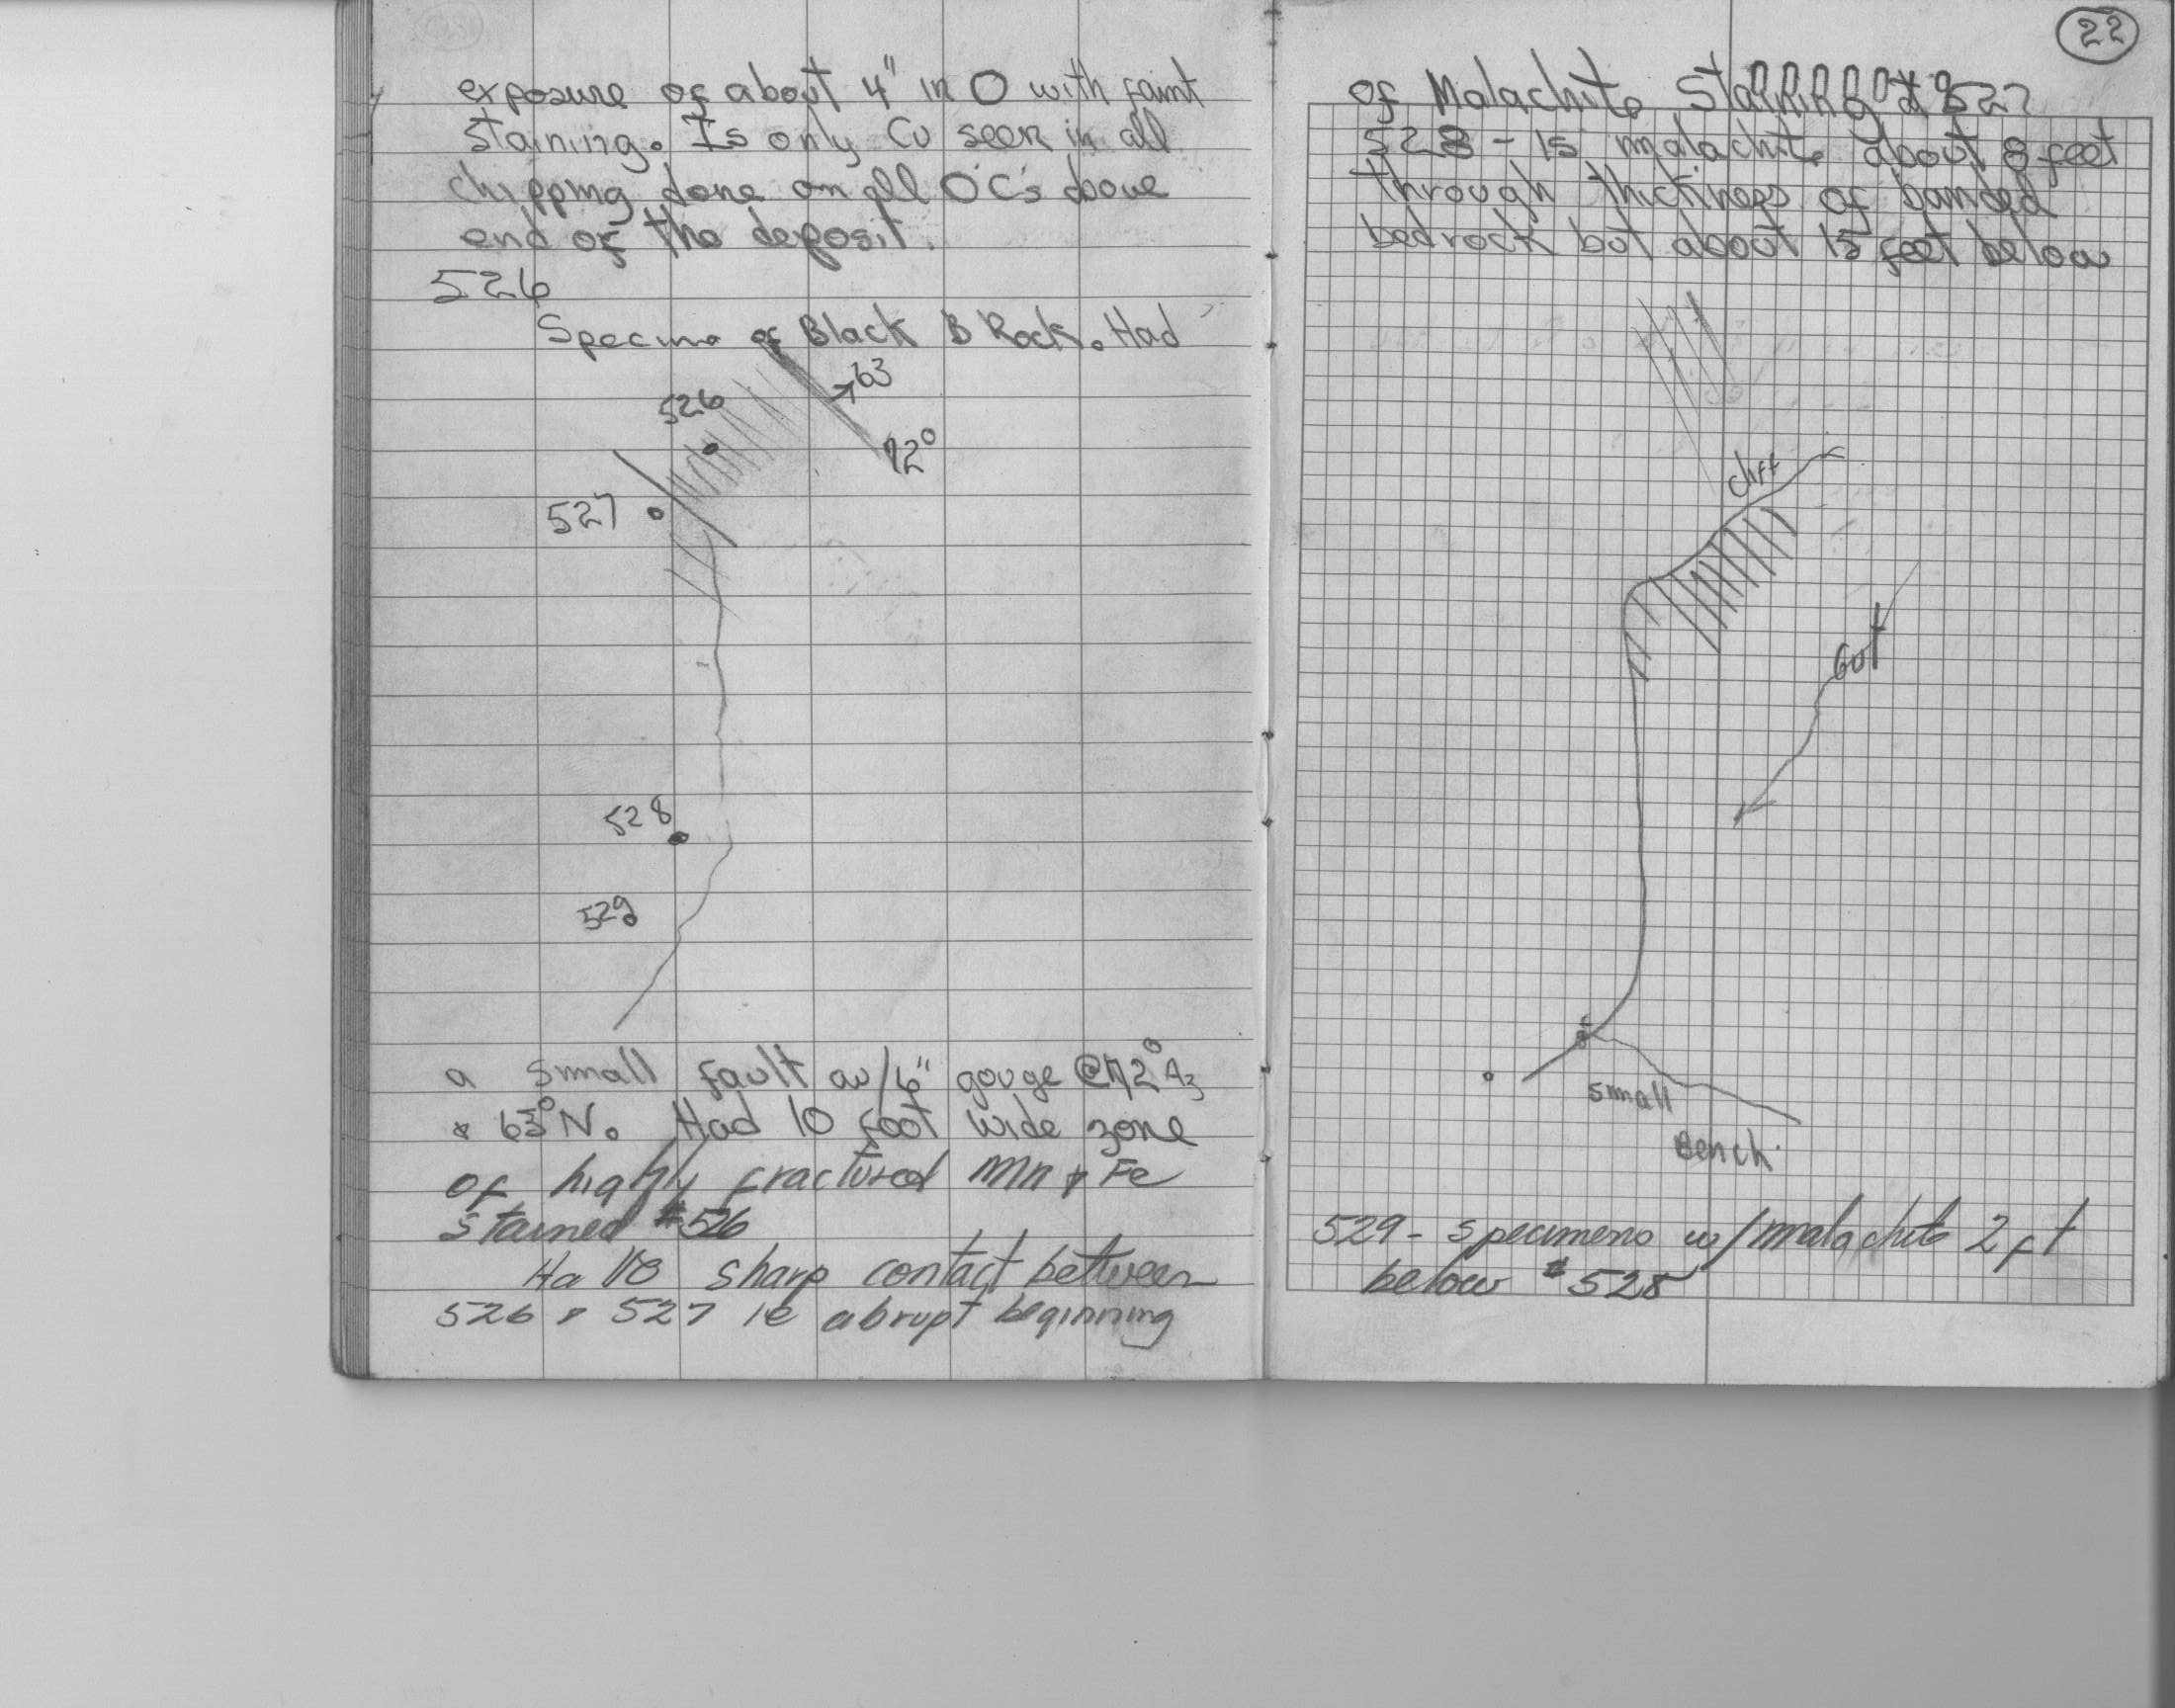 exposure of about 4" in O with faint
staining. Is only Cu seen in all
chipping done on all OC's above
end of the deposit.
526
Specimn of Black B Rock. Had
63
526
72°
527
528
529
a small fault w/6" gouge @ 72° Az
& 63° N. Had 10 foot wide zone
of highly fractured Mn & Fe
stained #526
sharp contact between
526 & 527 ie abrupt beginning
22
of Malachite Staining at 527
528 - Is malachite about 8 feet
through thickness of banded
bedrock but about 15 feet below
cliff
Gut
small
Bench
529 - specimens w/malachite 2 ft
below #528